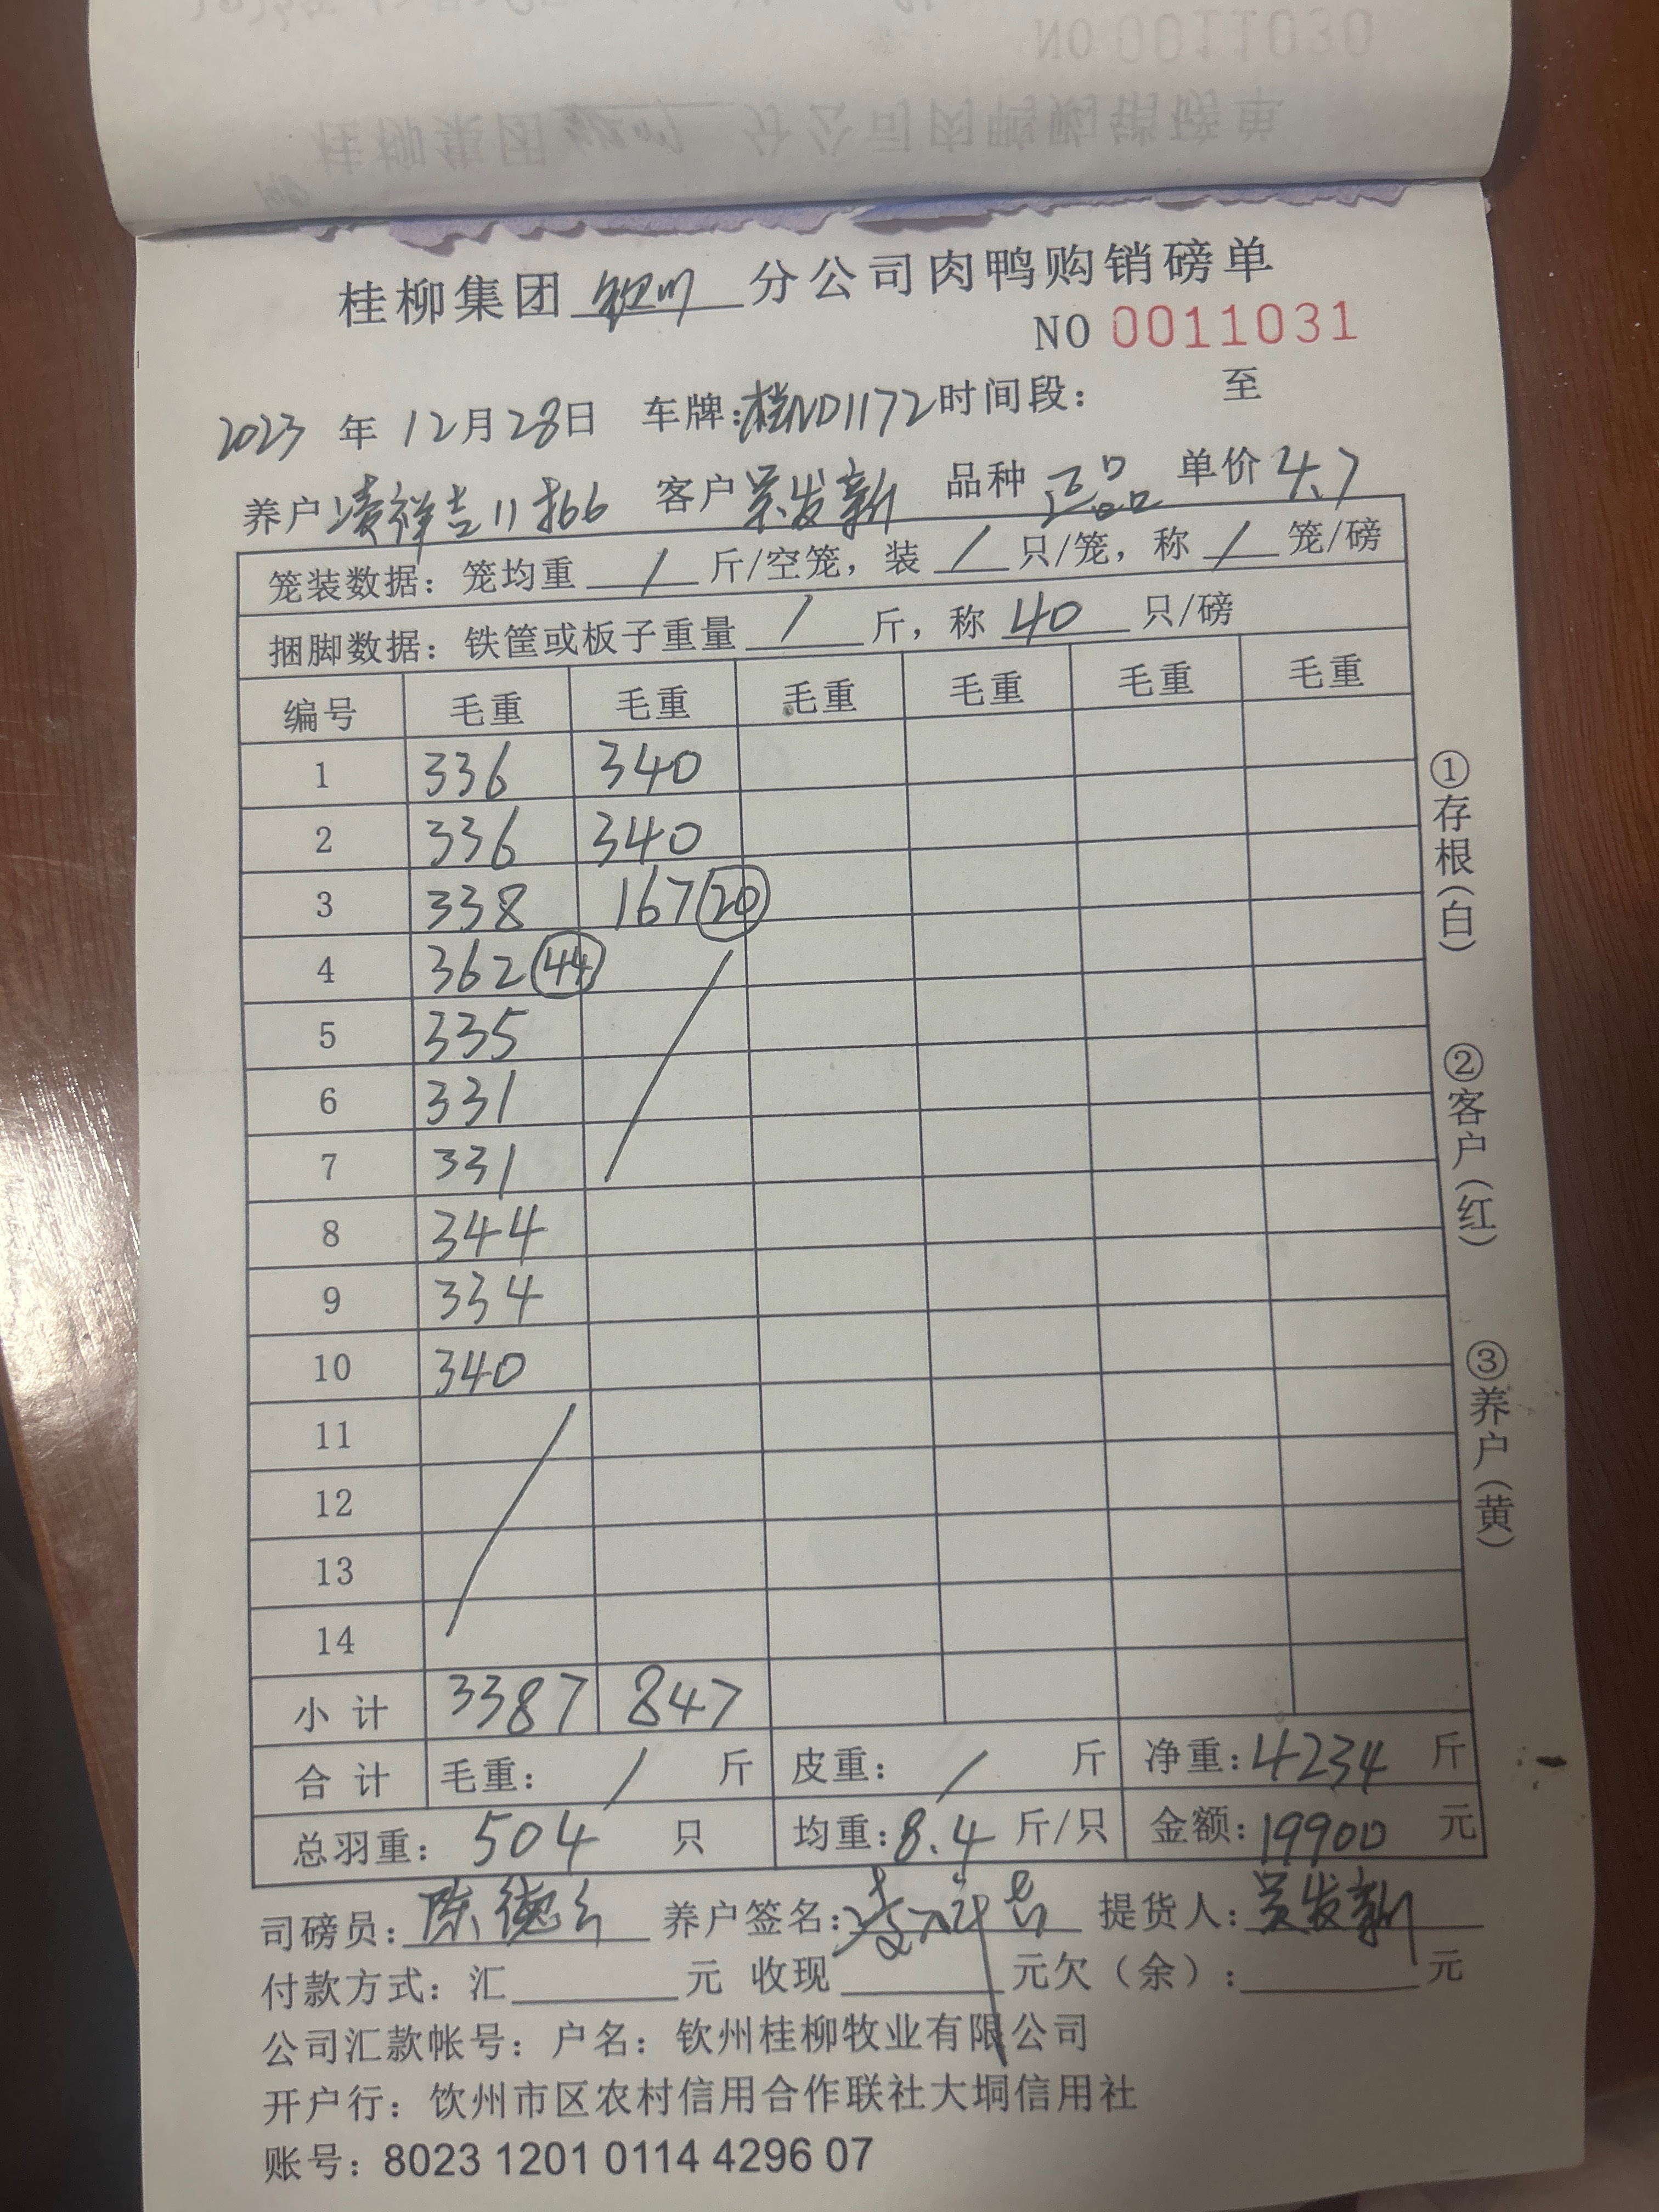 桂柳集团 钦州 分公司肉鸭购销磅单
NO 0011031
2023 年 12月28日 车牌:桂ND1172 时间段: 至
养户 凌祥吉11批6 客户 吴发新 品种 正品 单价 4.7
笼装数据: 笼均重 / 斤/空笼, 装 / 只/笼, 称 / 笼/磅
捆脚数据: 铁筐或板子重量 / 斤, 称 40 只/磅
编号 毛重 毛重 毛重 毛重 毛重 毛重
1 336 340
2 336 340
3 338 167 20
4 362 44
5 335
6 331
7 331
8 344
9 334
10 340
11
12
13
14
小计 3387 847
合计 毛重: / 斤 皮重: / 斤 净重: 4234 斤
总羽重: 504 只 均重: 8.4 斤/只 金额: 19900 元
司磅员: 陈德 养户签名: 凌祥吉 提货人: 吴发新
付款方式: 汇 元 收现 元欠(余): 元
公司汇款帐号: 户名: 钦州桂柳牧业有限公司
开户行: 钦州市区农村信用合作联社大垌信用社
账号: 8023 1201 0114 4296 07
①存根(白) ②客户(红) ③养户(黄)